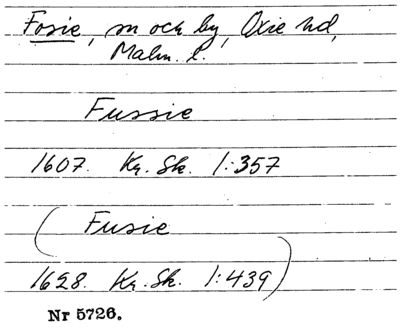 Fosie, sn och by, Oxie hd,
Malm. l.
Fussie
1607. Kr. Sk. 1:357
(Fusie
1628. Kr. Sk. 1:439)
Nr 5726.